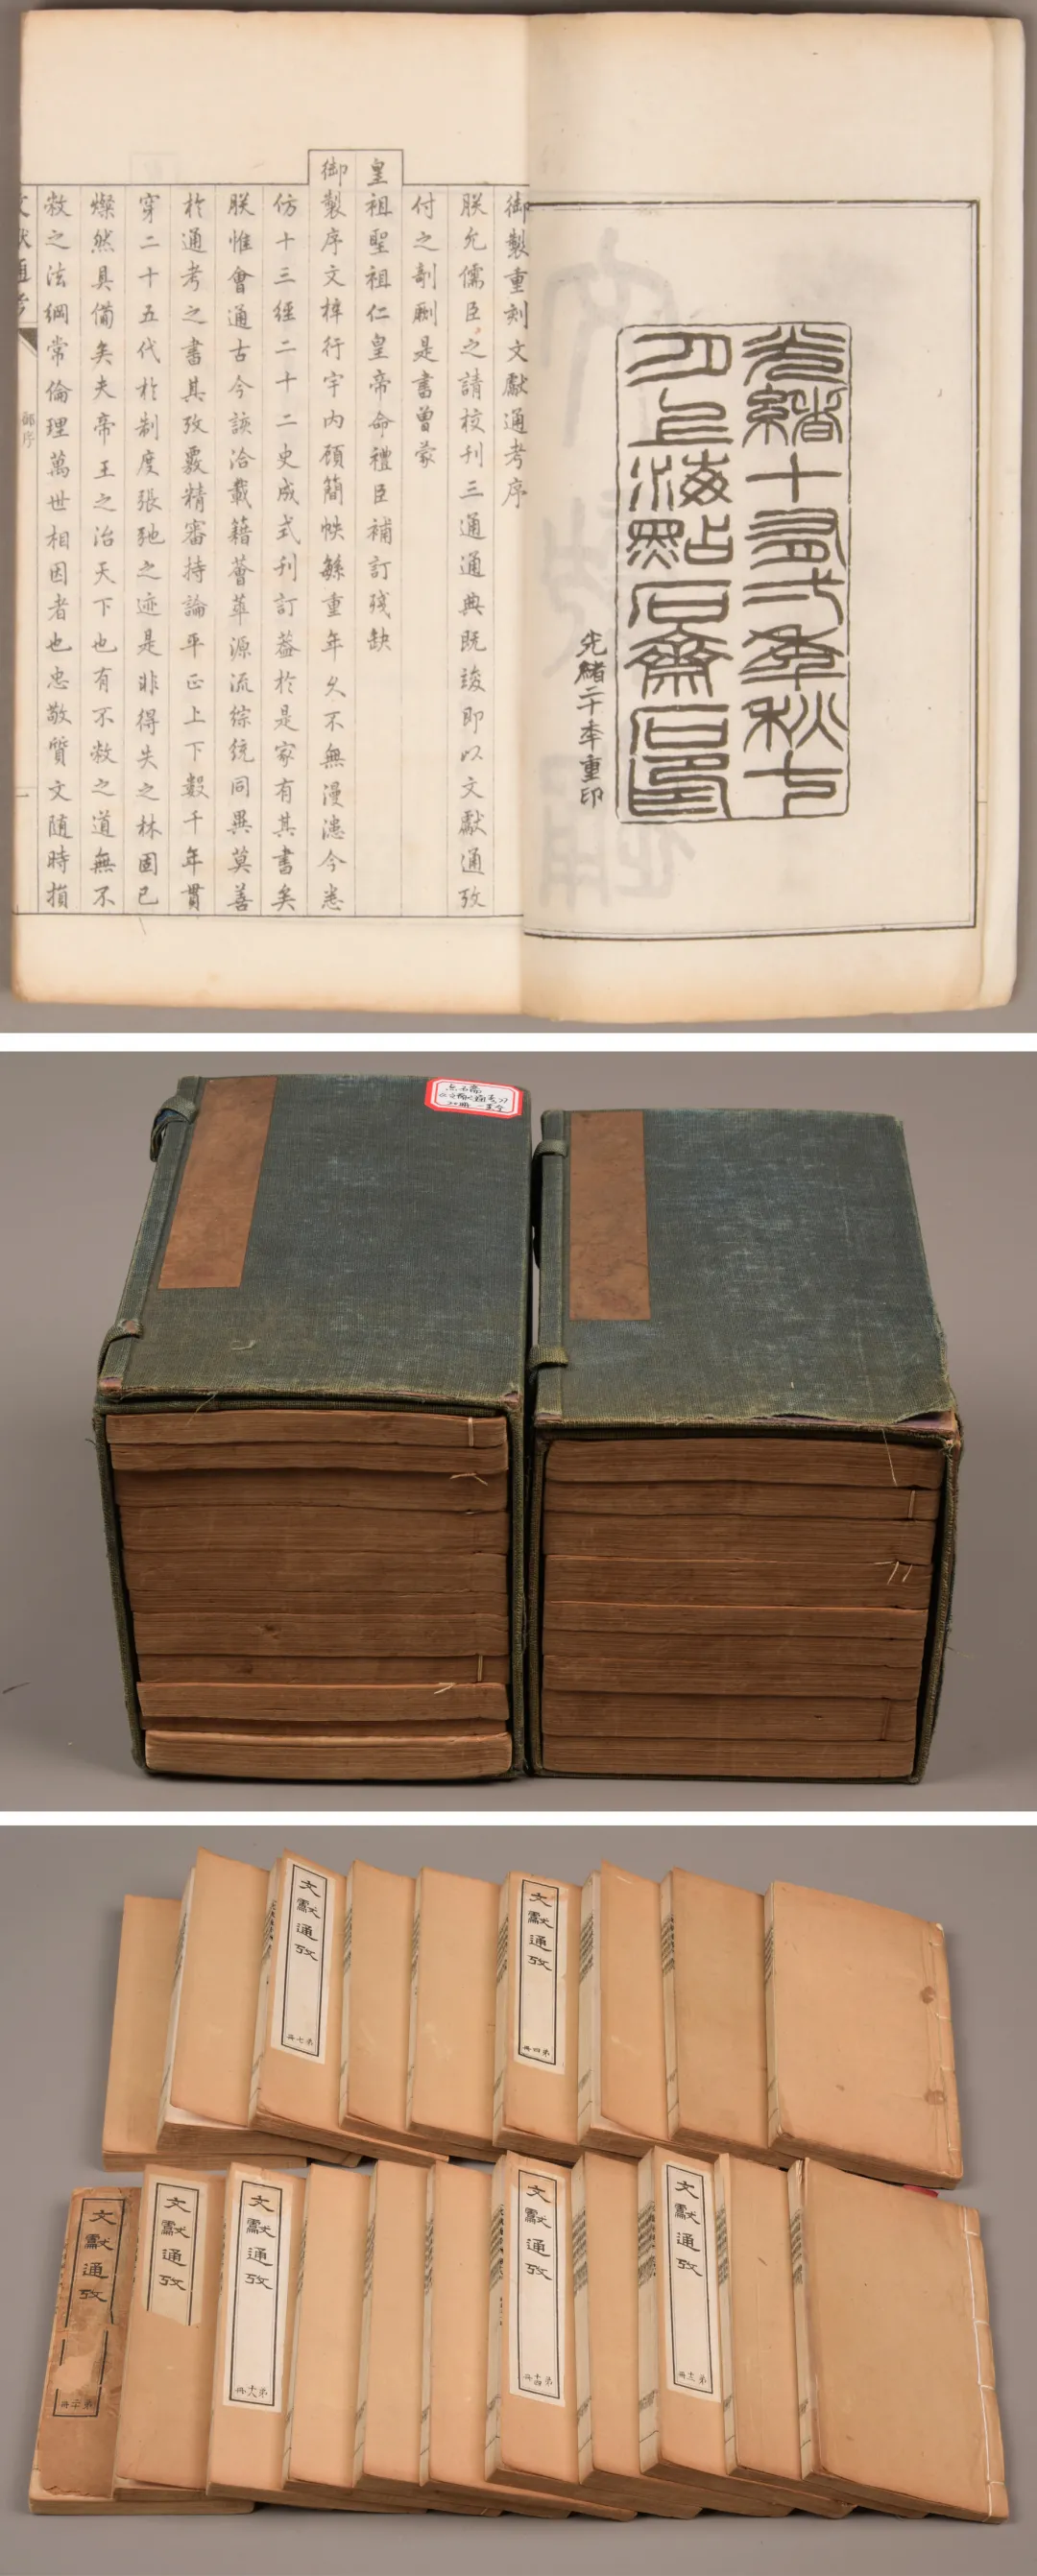 光緒十有弍季秋七
月上海點石齋石印
光緒二十季重印
御製重刻文獻通考序
朕允儒臣之請校刊三通通典既竣即以文獻通攷
付之剞劂是書曾蒙
皇祖聖祖仁皇帝命禮臣補訂殘缺
御製序文梓行宇內顧簡帙緐重年久不無漫漶今悉
仿十三經二十二史成式刊訂葢於是家有其書矣
朕惟會通古今該洽載籍薈萃源流綜統同異莫善
於通考之書其攷覈精審持論平正上下數千年貫
穿二十五代於制度張弛之迹是非得失之林固已
燦然具備矣夫帝王之治天下也有不敝之道無不
敝之法綱常倫理萬世相因者也忠敬質文隨時損
文獻通考
御序
一
点石斋
《文献通考》
20册一套全
文獻通攷
弟七冊
文獻通攷
弟四冊
文獻通攷
弟二十冊
文獻通攷
文獻通攷
弟十八冊
文獻通攷
弟十四冊
文獻通攷
弟十三冊